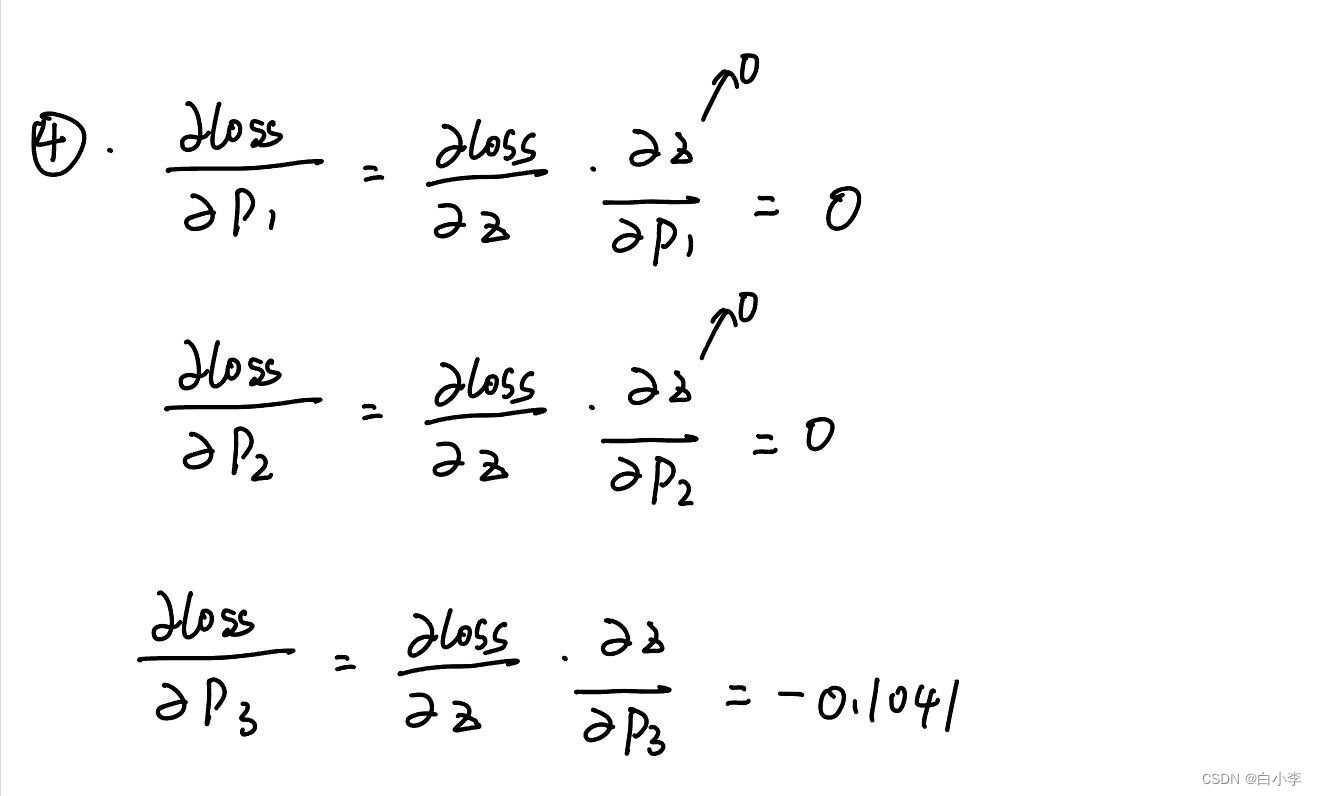 ④. ∂loss/∂P₁ = ∂loss/∂z · ∂z/∂P₁ ↗0 = 0
∂loss/∂P₂ = ∂loss/∂z · ∂z/∂P₂ ↗0 = 0
∂loss/∂P₃ = ∂loss/∂z · ∂z/∂P₃ = -0.1041
CSDN @白小李